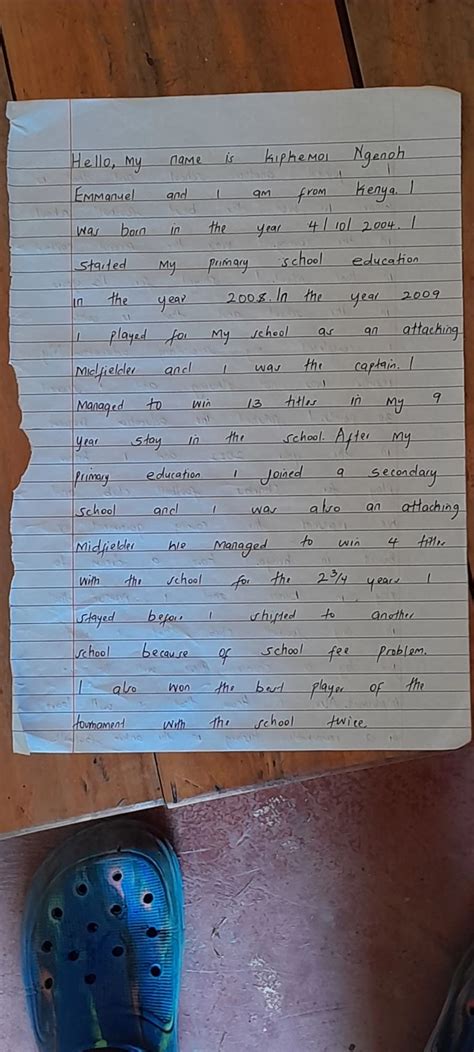 Hello, My name is kiphemoi Ngenoh
Emmanuel and I am from Kenya. I
was born in the year 4/10/2004. I
started My primary school education
in the year 2008. In the year 2009
I played for My school as an attacking
Midfielder and I was the captain. I
Managed to win 13 titles in My 9
year stay in the school. After My
primary education I joined a secondary
school and I was also an attaching
Midfielder We Managed to win 4 titles
with the school for the 2 3/4 years I
stayed before I shifted to another
school because of school fee problem.
I also won the best player of the
tournament with the school twice.